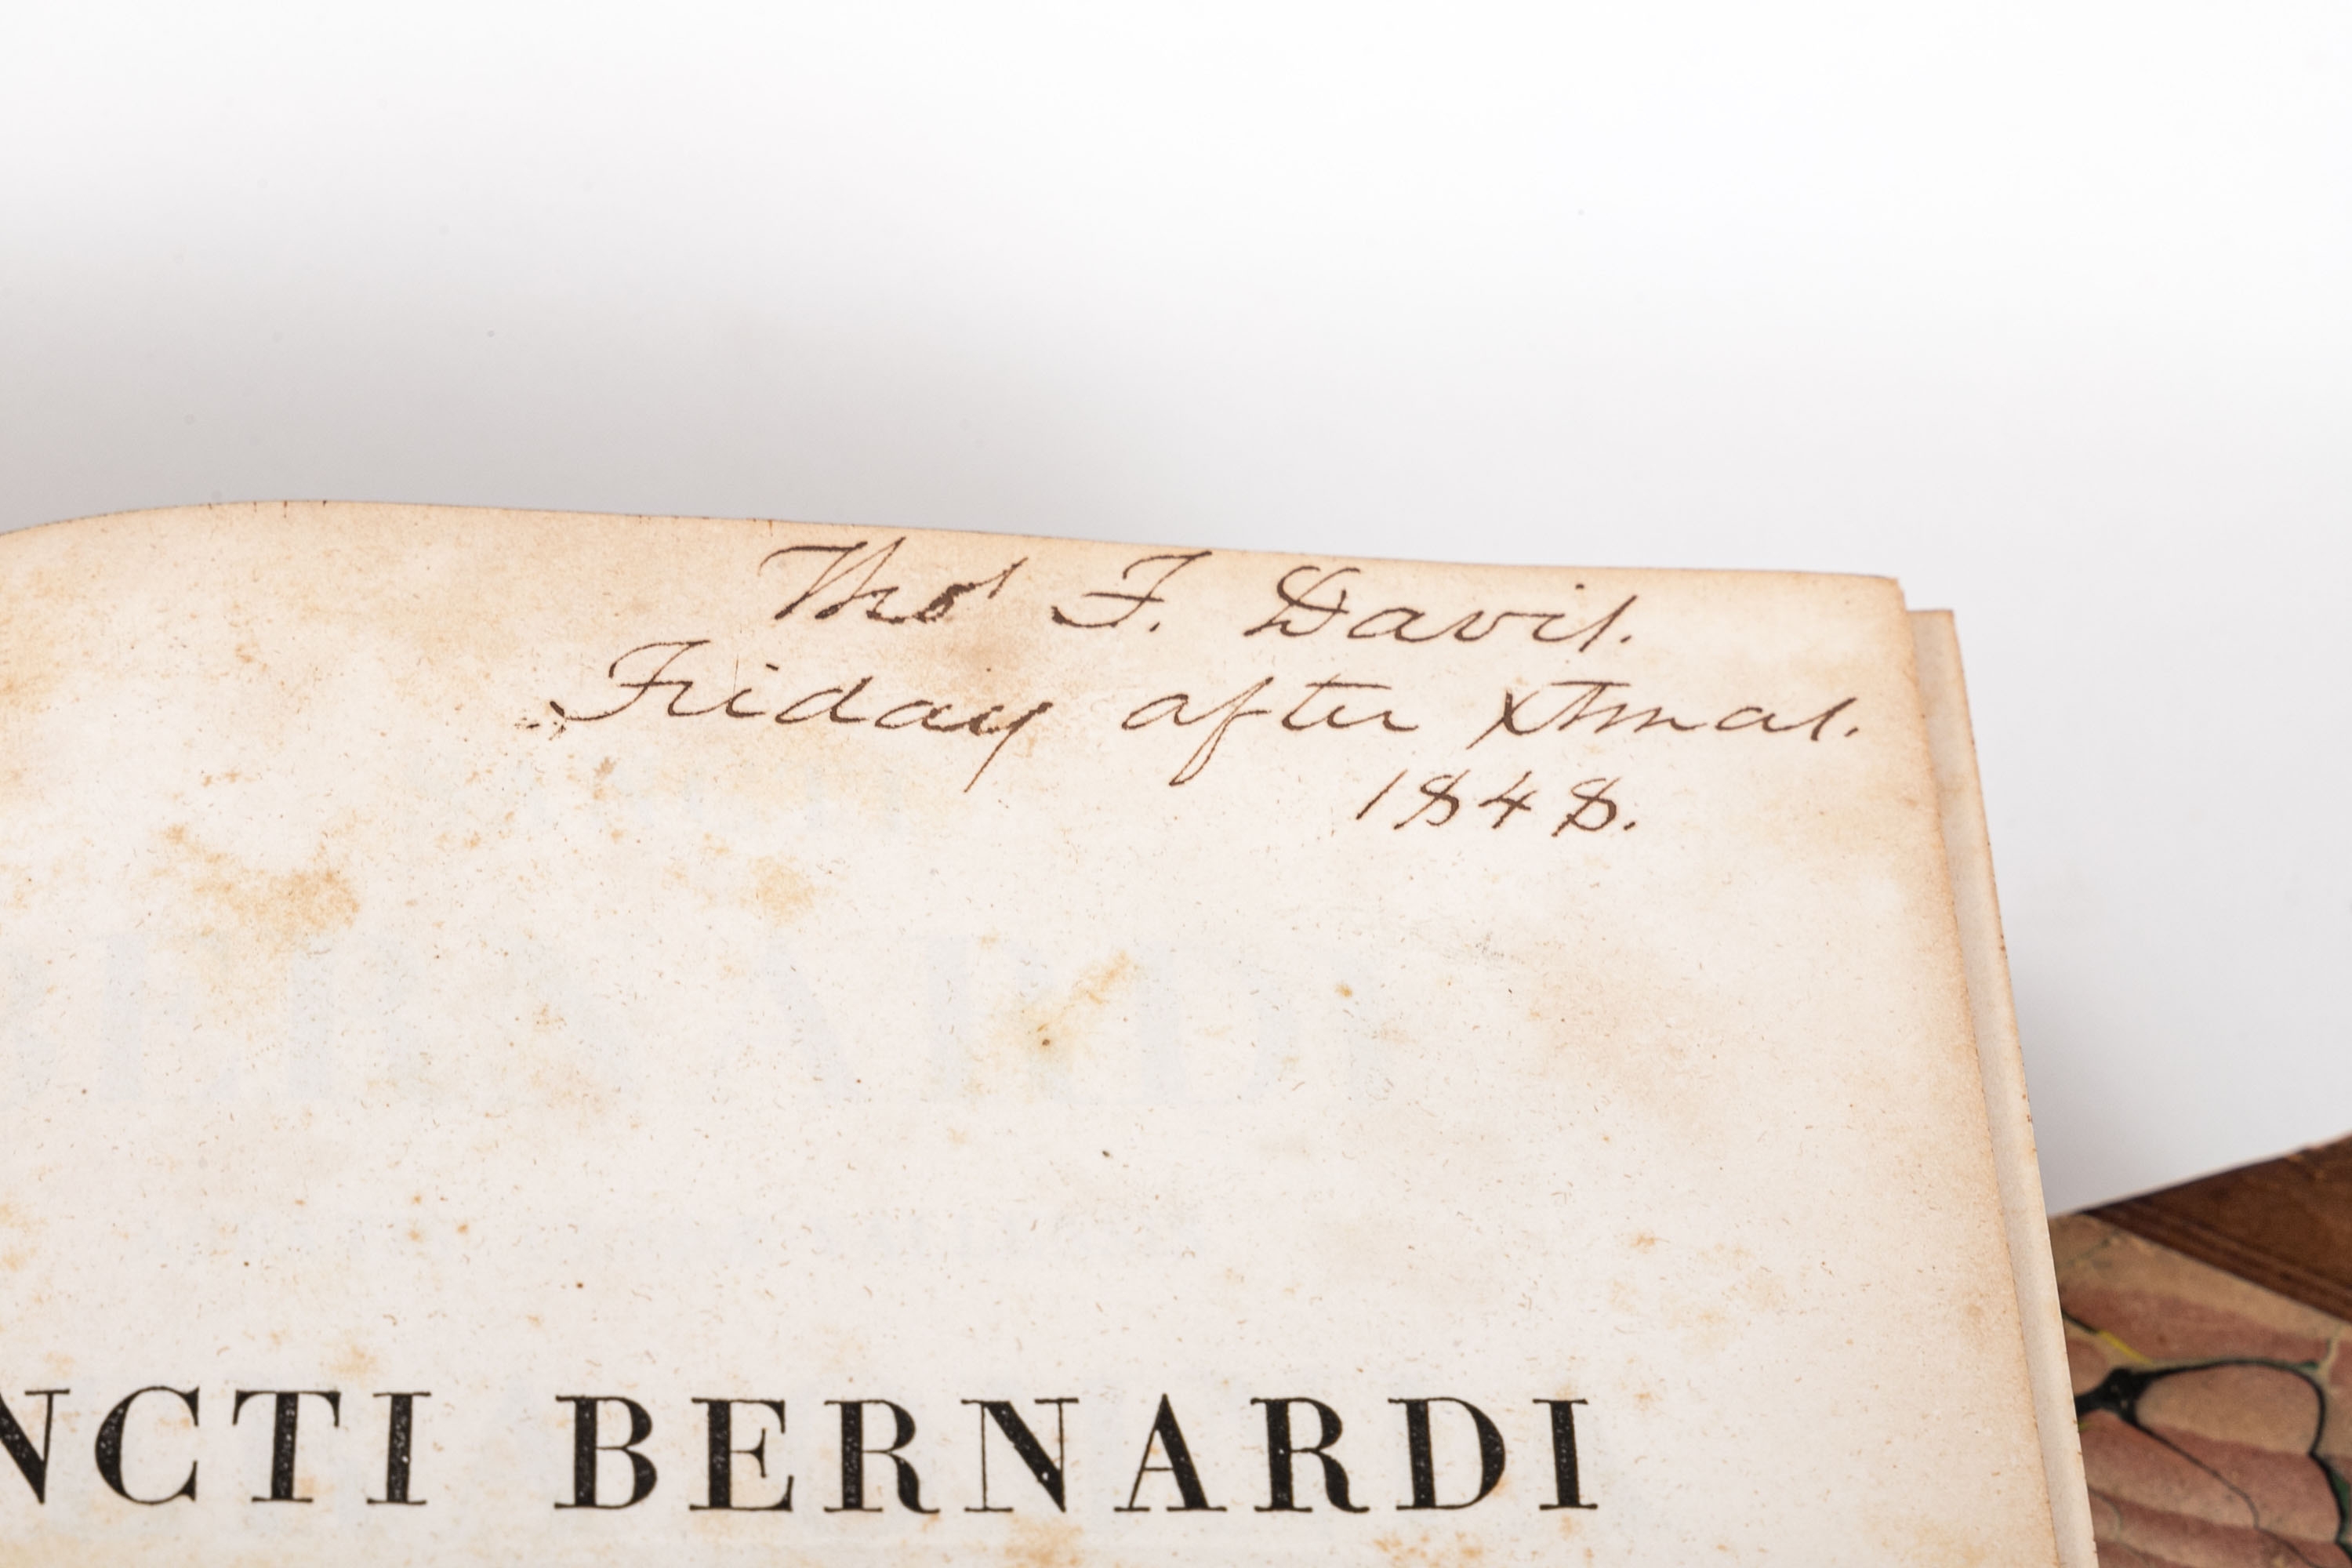 Thos F. Davis.
Friday after Xtmas.
1848.
NCTI BERNARDI